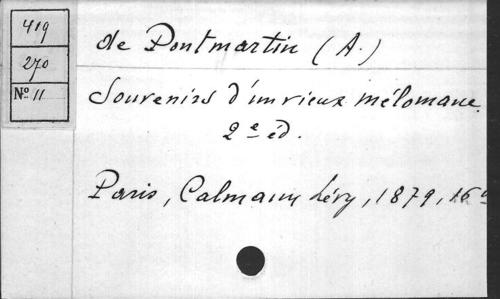 419
270
Nº 11
de Pontmartin (A.)
Souvenirs d'un vieux mélomane.
2e éd.
Paris, Calmann Lévy, 1879, 16º